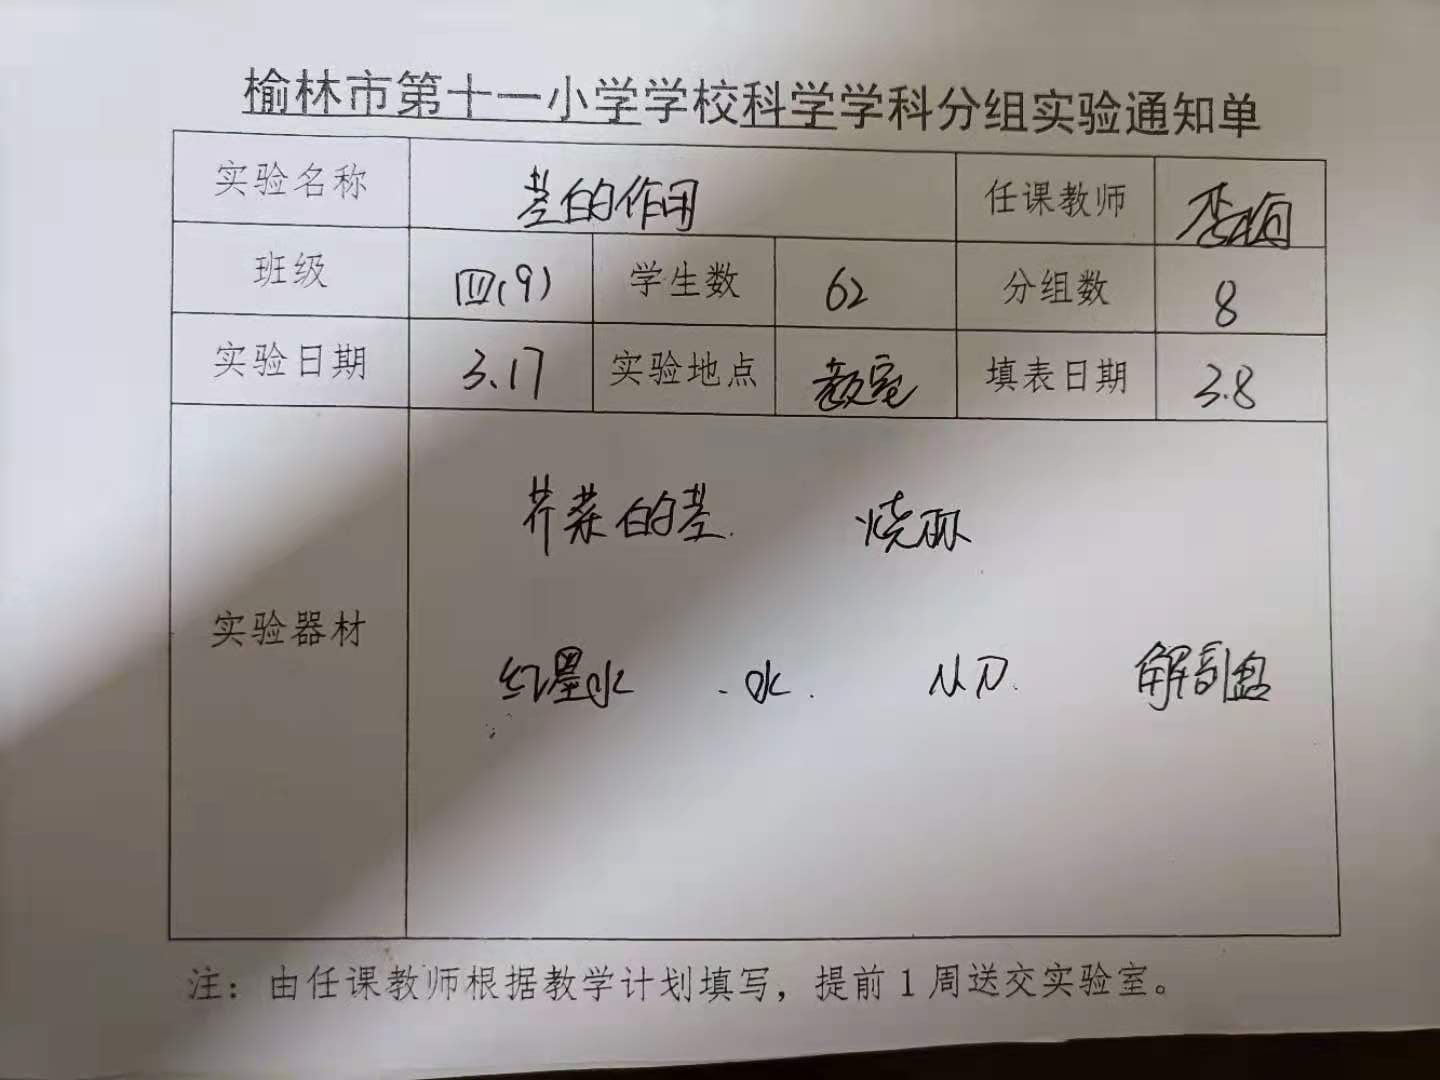 榆林市第十一小学学校科学学科分组实验通知单
实验名称 茎的作用 任课教师
班级 四(9) 学生数 62 分组数 8
实验日期 3.17 实验地点 教室 填表日期 3.8
实验器材
芹菜的茎. 烧杯
红墨水 . 水. 小刀. 解剖盘
注：由任课教师根据教学计划填写，提前1周送交实验室。